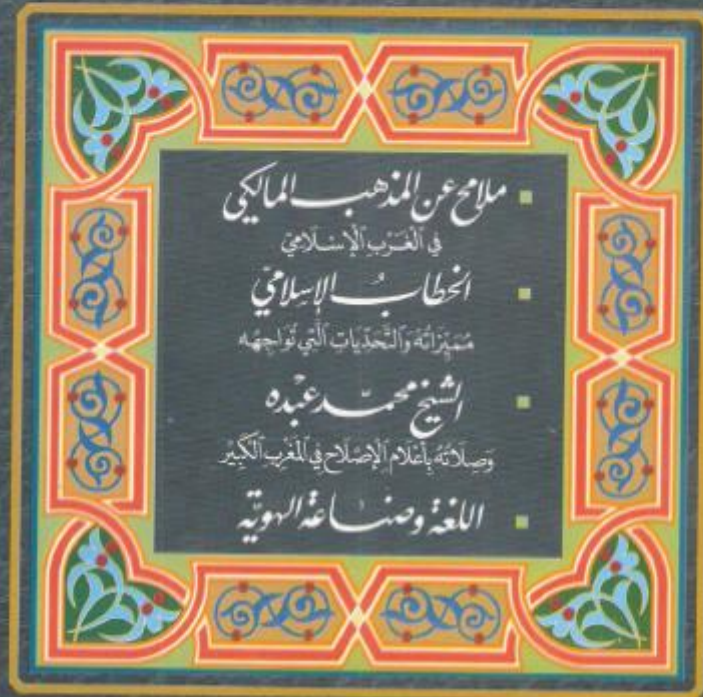 ▪ ملامح عن المذهب المالكي
في الغَرْبِ الإِسْلَامِيّ
▪ الخطابُ الإسلاميّ
مُمَيِّزَاتُهُ وَالتَّحَدِّيَاتِ الَّتِي تُوَاجِهُه
▪ الشيخ محمّد عبْده
وَصِلَاتُهُ بِأَعْلَامِ الإِصْلَاحِ فِي المَغْرِبِ الْكَبِيْر
▪ اللغة وصناعة الهويّة